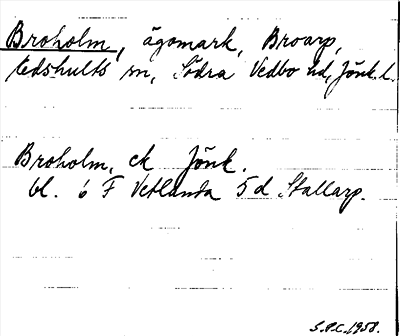 Broholm, ägomark, Broarp,
Edshults sn, Södra Vedbo hd, Jönk. l.
Broholm, ek Jönk.
bl. 6 F Vetlanda 5 d. Stallarp.
S.P.C. 1958.